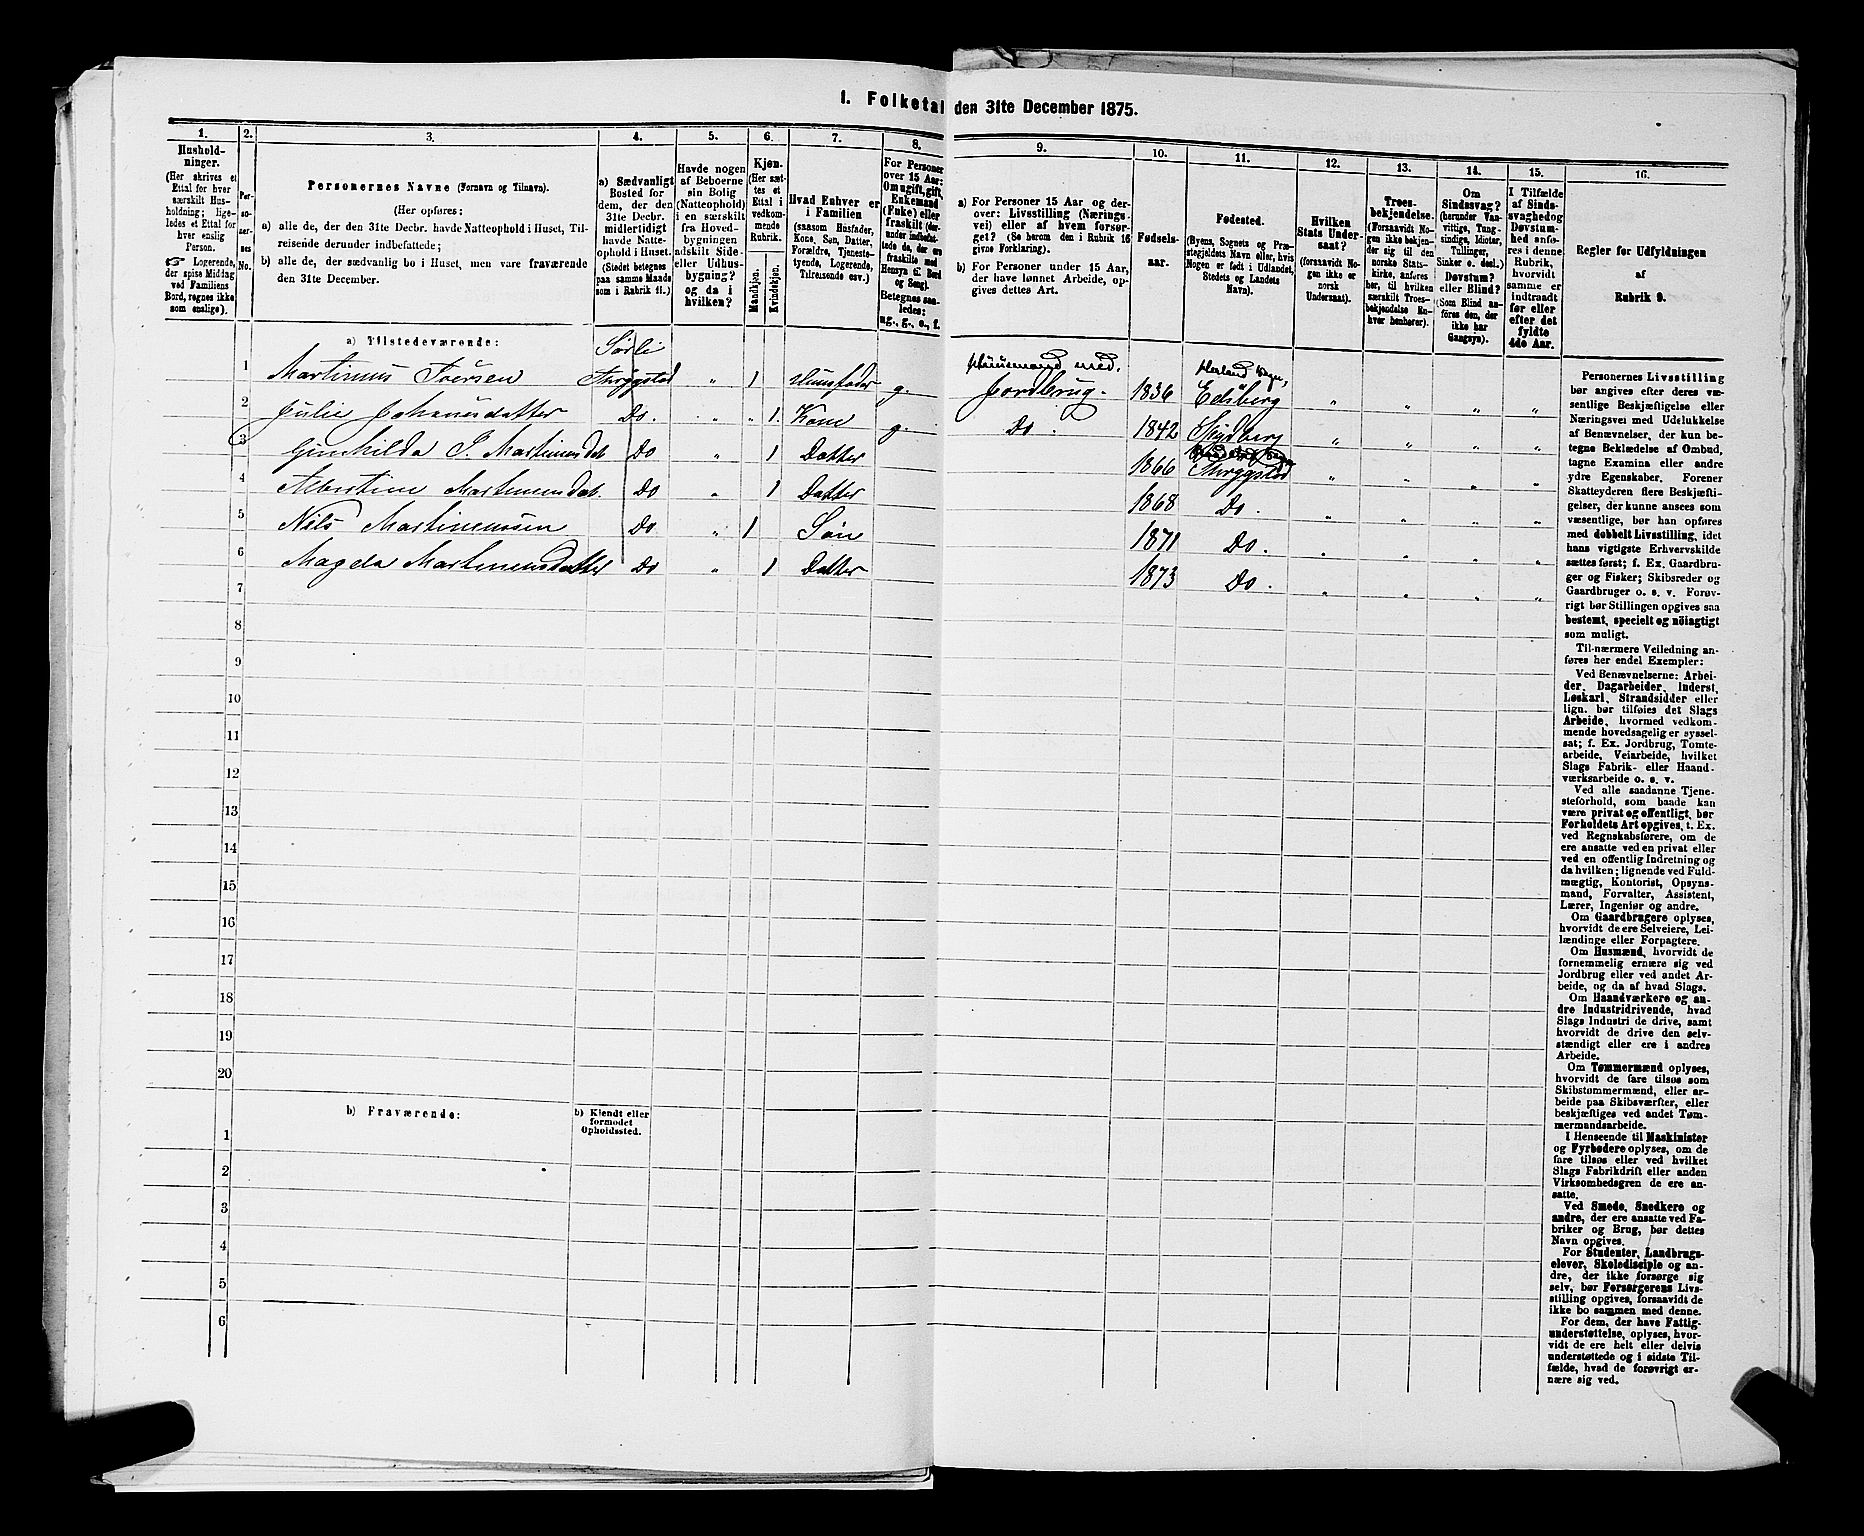 1. Folketal den 31te December 1875.
1. 2. 3. 4. 5. 6. 7. 8. 9. 10. 11. 12. 13. 14. 15. 16.
Hushold-
ninger.
(Her skrives et
Ettal for hver
særskilt Hus-
holdning; lige-
ledes et Ettal for
hver enslig
Person.
☞ Logerende,
der spise Middag
ved Familiens
Bord, regnes ikke
som enslige).
Per-
so-
ner-
nes
No.
Personernes Navne (Fornavn og Tilnavn).
(Her opføres:
a) alle de, der den 31te Decbr. havde Natteophold i Huset, Til-
reisende derunder indbefattede;
b) alle de, der sædvanlig bo i Huset, men vare fraværende
den 31te December.
a) Sædvanligt
Bosted for
dem, der den
31te Decbr.
midlertidigt
havde Natte-
ophold i Huset.
(Stedet betegnes
paa samme Maade
som i Rubrik 11.)
Havde nogen
af Beboerne
sin Bolig
(Natteophold)
i en særskilt
fra Hoved-
bygningen
adskilt Side-
eller Udhus-
bygning?
og da i
hvilken?
Kjøn.
(Her sæt-
tes et
Ettal i
vedkom-
mende
Rubrik.
Mandkjøn.
Kvindekjøn.
Hvad Enhver er
i Familien
(saasom Husfader,
Kone, Søn, Datter,
Forældre, Tjeneste-
tyende, Logerende,
Tilreisende osv.)
For Personer
over 15 Aar:
Om ugift, gift,
Enkemand
(Enke) eller
fraskilt (der-
under indbefat-
tede de, der ere
fraskilte med
Hensyn til Bord
og Seng).
Betegnes saa-
ledes:
ug., g., e., f.
a) For Personer 15 Aar og der-
over: Livsstilling (Nærings-
vei) eller af hvem forsør-
get? (Se herom den i Rubrik 16
givne Forklaring).
b) For Personer under 15 Aar,
der have lønnet Arbeide, op-
gives dettes Art.
Fødsels-
aar.
Fødested.
(Byens, Sognets og Præ-
stegjeldets Navn eller, hvis
Nogen er født i Udlandet,
Stedets og Landets
Navn).
Hvilken
Stats Under-
saat?
(forsaavidt No-
gen ikke er
norsk
Undersaat).
Troes-
bekjendelse.
(Forsaavidt No-
gen ikke bekjen-
der sig til den
norske Stats-
kirke, anføres
her, til hvilken
særskilt Troes-
bekjendelse En-
hver henhører).
Om
Sindssvag?
(herunder Van-
vittige, Tung-
sindige, Idioter,
Tullinger,
Sinker o. desl.).
Døvstum?
eller Blind?
(Som Blind an-
føres den, der
ikke har
Gangsyn).
I Tilfælde
af Sinds-
svaghed og
Døvstum-
hed anfø-
res i denne
Rubrik,
hvorvidt
samme er
indtraadt
før eller
efter det
fyldte
4de Aar.
Regler for Udfyldningen
af
Rubrik 9.
a) Tilstedeværende:
Sørli Huusmand med
1 Martinus Iversen Thrygstad " 1 Huusfader g. Jordbrug. 1836 Edsberg " " " "
2 Julie Johansdatter Do. " 1. Kone g. Do. 1842 " " " "
3 Gunhilda J. Martinusdat Do " 1 Datter 1866 Thrygstad " " " "
4 Albertine Martinusdat. Do " 1 Datter 1868 Do. " " " "
5 Nils Martinussen Do " 1 Søn 1871 Do. " " " "
6 Magda Martinusdatter Do " 1 Datter 1873 Do. " " " "
7
8
9
10
11
12
13
14
15
16
17
18
19
20
b) Fraværende: b) Kjendt eller
formodet
Opholdssted.
1
2
3
4
5
6
Personernes Livsstilling
bør angives efter deres væ-
sentlige Beskjæftigelse eller
Næringsvei med Udelukkelse
af Benævnelser, der kun be-
tegne Beklædelse af Ombud,
tagne Examina eller andre
ydre Egenskaber. Forener
Skatteyderen flere Beskjæfti-
gelser, der kunne ansees som
væsentlige, bør han opføres
med dobbelt Livsstilling, idet
hans vigtigste Erhvervskilde
sættes først; f. Ex. Gaardbru-
ger og Fisker; Skibsreder og
Gaardbruger o. s. v. Forøv-
rigt bør Stillingen opgives saa
bestemt, specielt og nöiagtigt
som muligt.
Til nærmere Veiledning an-
føres her endel Exempler:
Ved Benævnelserne: Arbei-
der, Dagarbeider, Inderst,
Løskarl, Strandsidder eller
lign. bør tilføies det Slags
Arbeide, hvormed vedkom-
mende hovedsagelig er syssel-
sat; f. Ex. Jordbrug, Tomte-
arbeide, Veiarbeide, hvilket
Slags Fabrik- eller Haand-
værksarbeide o. s. v.
Ved alle saadanne Tjene-
steforhold, som baade kan
være privat og offentligt, bør
Forholdets Art opgives, t. Ex.
ved Regnskabsførere, om de
ere ansatte ved en privat eller
ved en offentlig Indretning og
da hvilken; lignende ved Fuld-
mægtig, Kontorist, Opsyns-
mand, Forvalter, Assistent,
Lærer, Ingeniør og andre.
Om Gaardbrugere oplyses,
hvorvidt de ere Selveiere, Lei-
lændinge eller Forpagtere.
Om Husmænd, hvorvidt de
fornemmelig ernære sig ved
Jordbrug eller ved andet Ar-
beide, og da af hvad Slags.
Om Haandværkere og an-
dre Industridrivende, hvad
Slags Industri de drive, samt
hvorvidt de drive den selv-
stændigt eller ere i andres
Arbeide.
Om Tømmermænd oplyses,
hvorvidt de fare tilsøs som
Skibstømmermænd, eller ar-
beide paa Skibsværfter, eller
beskjæftiges ved andet Tøm-
mermandsarbeide.
I Henseende til Maskinister
og Fyrbødere oplyses, om de
fare tilsøs eller ved hvilket
Slags Fabrikdrift eller anden
Virksomhedsgren de ere an-
satte.
Ved Smede, Snedkere og
andre, der ere ansatte ved Fa-
briker og Brug, bør dettes
Navn opgives.
For Studenter, Landbrugs-
elever, Skoledisciple og an-
dre, der ikke forsørge sig
selv, bør Forsørgerens Livs-
stilling opgives, forsaavidt de
ikke bo sammen med denne.
For dem, der have Fattig-
understøttelse, oplyses, hvor-
vidt de ere helt eller delvis
understøttede og i sidste Til-
fælde, hvad de forøvrigt er-
nære sig ved.